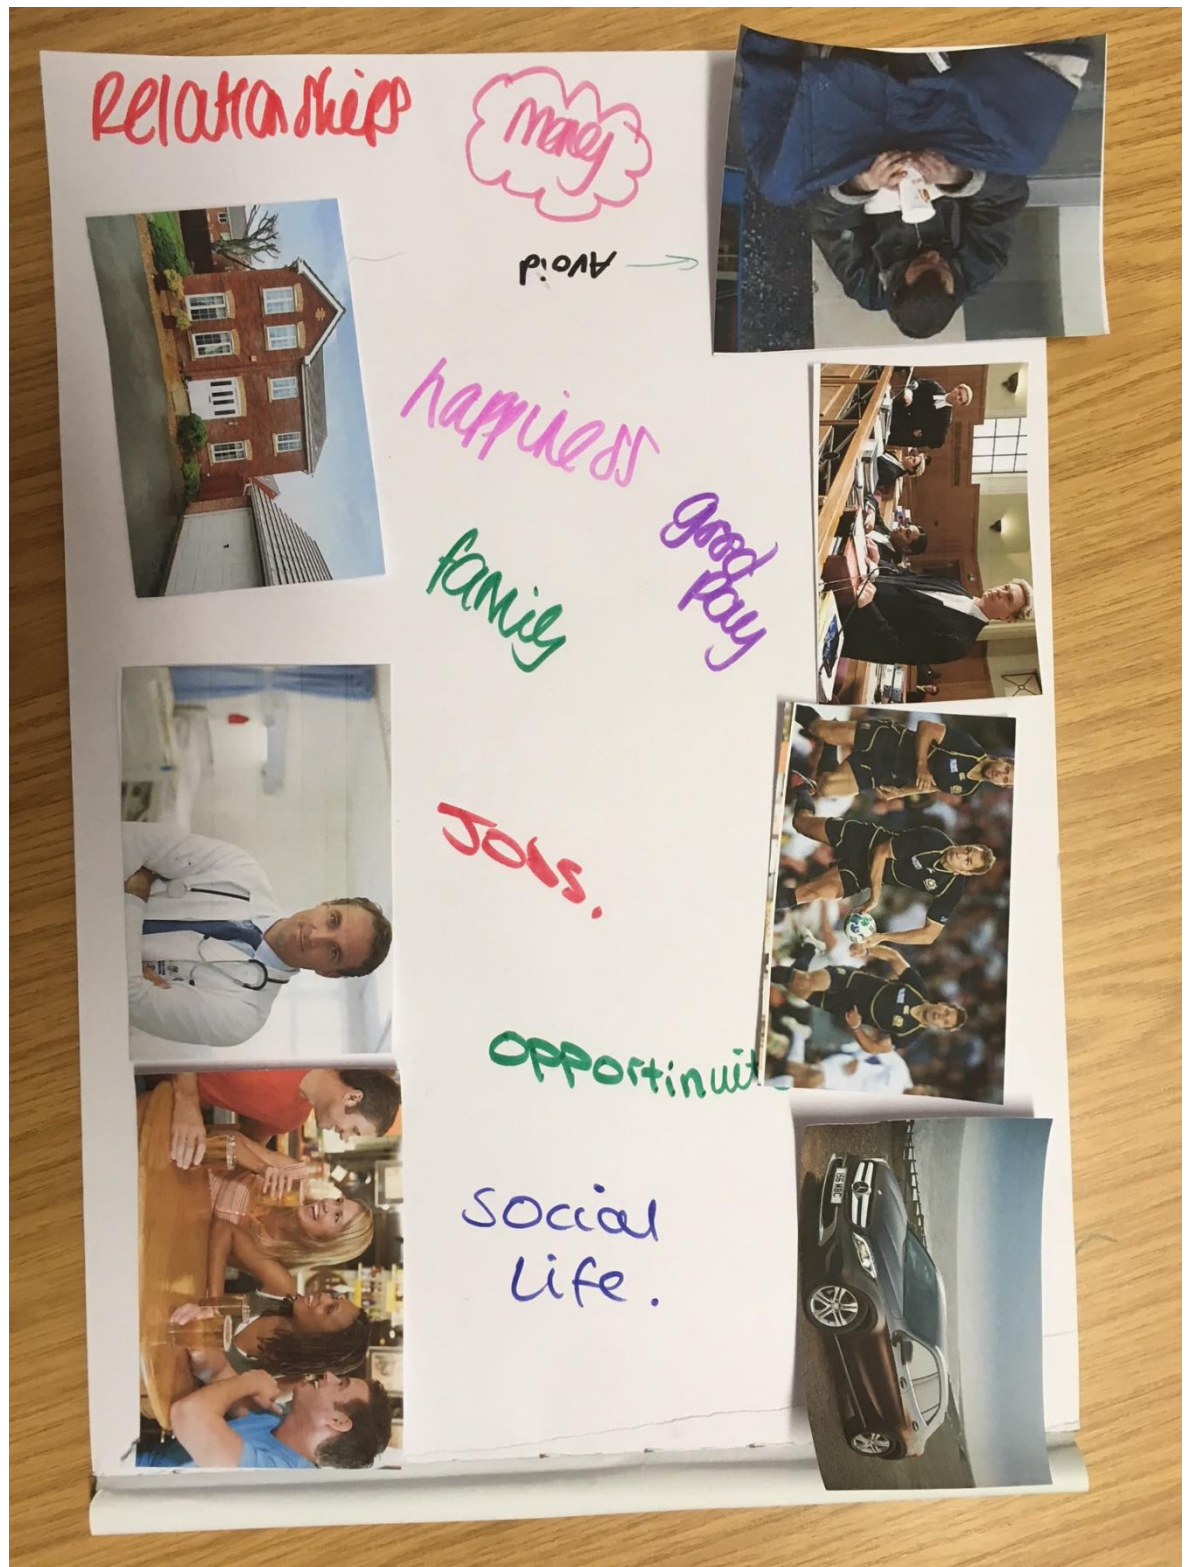 Relationships
money
Avoid
happiness
family
good
pay
Jobs.
opportinuit
social
Life.